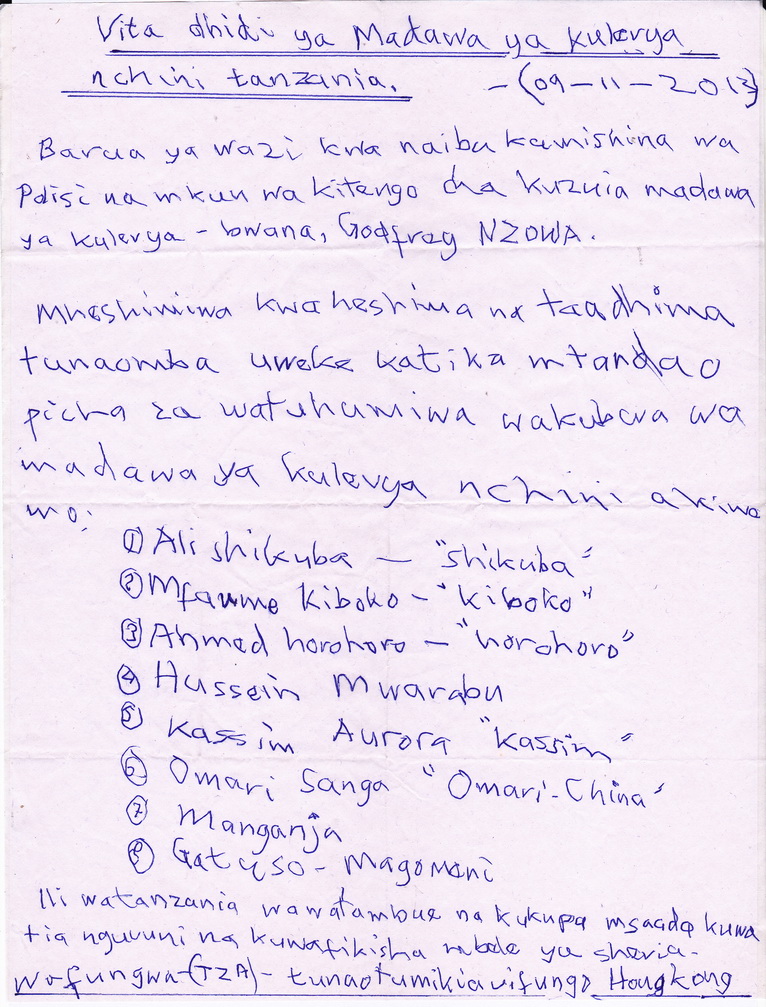 Vita dhidi ya Madawa ya kulevya
nchini tanzania. -(09-11-2013)
Barua ya wazi kwa naibu kamishina wa
Polisi na mkuu wa kitengo cha kuzuia madawa
ya kulevya - bwana, Godfrey NZOWA.
Mheshimiwa kwa heshima na taadhima
tunaomba uweke katika mtandao
picha za watuhumiwa wakubwa wa
madawa ya kulevya nchini akiwe
mo:
① Ali shikuba — "shikuba"
② Mfaume Kiboko - "kiboko"
③ Ahmed horohoro - "horohoro"
④ Hussein Mwarabu
⑤ Kassim Aurora "Kassim"
⑥ Omari Sanga "Omari-China"
⑦ Manganja
⑧ Gatuso - Magomeni
Ili watanzania wawatambue na kukupa msaada kuwa
tia nguvuni na kuwafikisha mbele ya sheria-
Wafungwa-(TZA)- tunaotumikia vifungo Hongkong